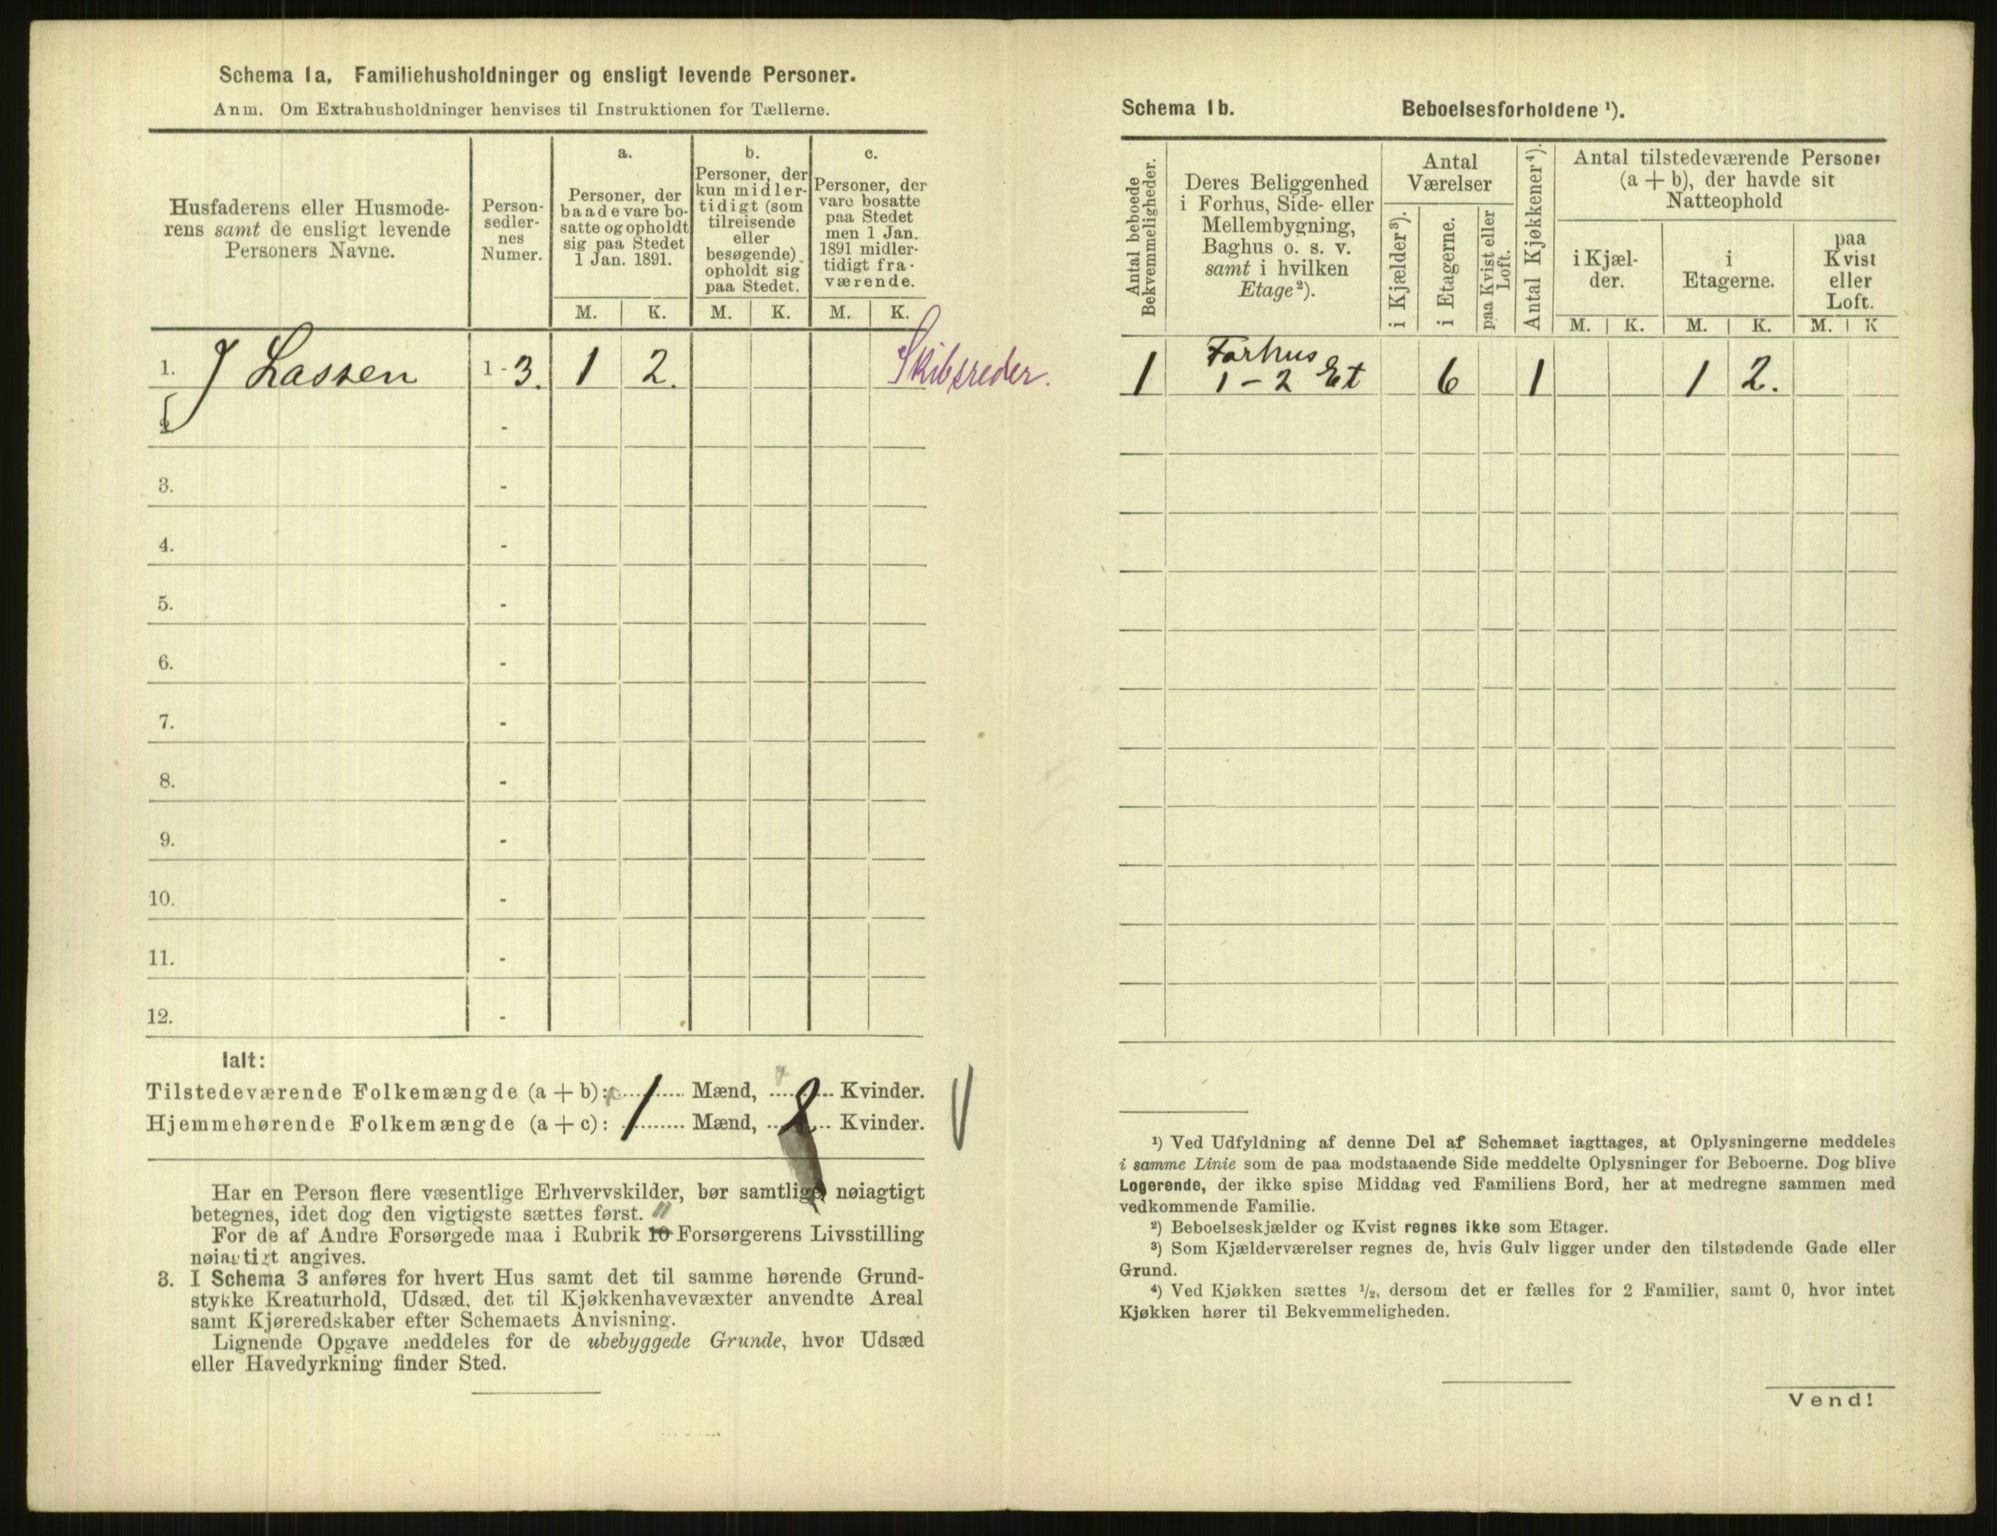 Schema 1a. Familiehusholdninger og ensligt levende Personer.
Anm. Om Extrahusholdninger henvises til Instruktionen for Tællerne.
Husfaderens eller Husmode-
rens samt de ensligt levende
Personers Navne.
Person-
sedler-
nes
Numer.
a.
Personer, der
baade vare bo-
satte og opholdt
sig paa Stedet
1 Jan. 1891.
b.
Personer, der
kun midler-
tidigt (som
tilreisende
eller
besøgende)
opholdt sig
paa Stedet.
c.
Personer, der
vare bosatte
paa Stedet
men 1 Jan.
1891 midler-
tidigt fra-
værende.
M. K. M. K. M. K.
1. J Lassen 1 - 3. 1 2. Skibsreder.
2. -
3. -
4. -
5. -
6. -
7. -
8. -
9. -
10. -
11. -
12. -
Ialt:
Tilstedeværende Folkemængde (a + b): 1 Mænd, 2 Kvinder.
Hjemmehørende Folkemængde (a + c): 1 Mænd, 2 Kvinder.
Har en Person flere væsentlige Erhvervskilder, bør samtlige nøiagtigt
betegnes, idet dog den vigtigste sættes først. 11
For de af Andre Forsørgede maa i Rubrik 10 Forsørgerens Livsstilling
nøiagtigt angives.
3. I Schema 3 anføres for hvert Hus samt det til samme hørende Grund-
stykke Kreaturhold, Udsæd, det til Kjøkkenhavevæxter anvendte Areal
samt Kjøreredskaber efter Schemaets Anvisning.
Lignende Opgave meddeles for de ubebyggede Grunde, hvor Udsæd
eller Havedyrkning finder Sted.
Schema 1b. Beboelsesforholdene ¹).
Antal beboede
Bekvemmeligheder.
Deres Beliggenhed
i Forhus, Side- eller
Mellembygning,
Baghus o. s. v.
samt i hvilken
Etage²).
Antal
Værelser
i Kjælder³).
i Etagerne.
paa Kvist eller
Loft.
Antal Kjøkkener⁴).
Antal tilstedeværende Personer
(a + b), der havde sit
Natteophold
i Kjæl-
der.
i
Etagerne.
paa
Kvist
eller
Loft.
M. K. M. K. M. K
Forhus
1 1 - 2 Et 6 1 1 2.
¹) Ved Udfyldning af denne Del af Schemaet iagttages, at Oplysningerne meddeles
i samme Linie som de paa modstaaende Side meddelte Oplysninger for Beboerne. Dog blive
Logerende, der ikke spise Middag ved Familiens Bord, her at medregne sammen med
vedkommende Familie.
²) Beboelseskjælder og Kvist regnes ikke som Etager.
³) Som Kjælderværelser regnes de, hvis Gulv ligger under den tilstødende Gade eller
Grund.
⁴) Ved Kjøkken sættes ½, dersom det er fælles for 2 Familier, samt 0, hvor intet
Kjøkken hører til Bekvemmeligheden.
Vend!